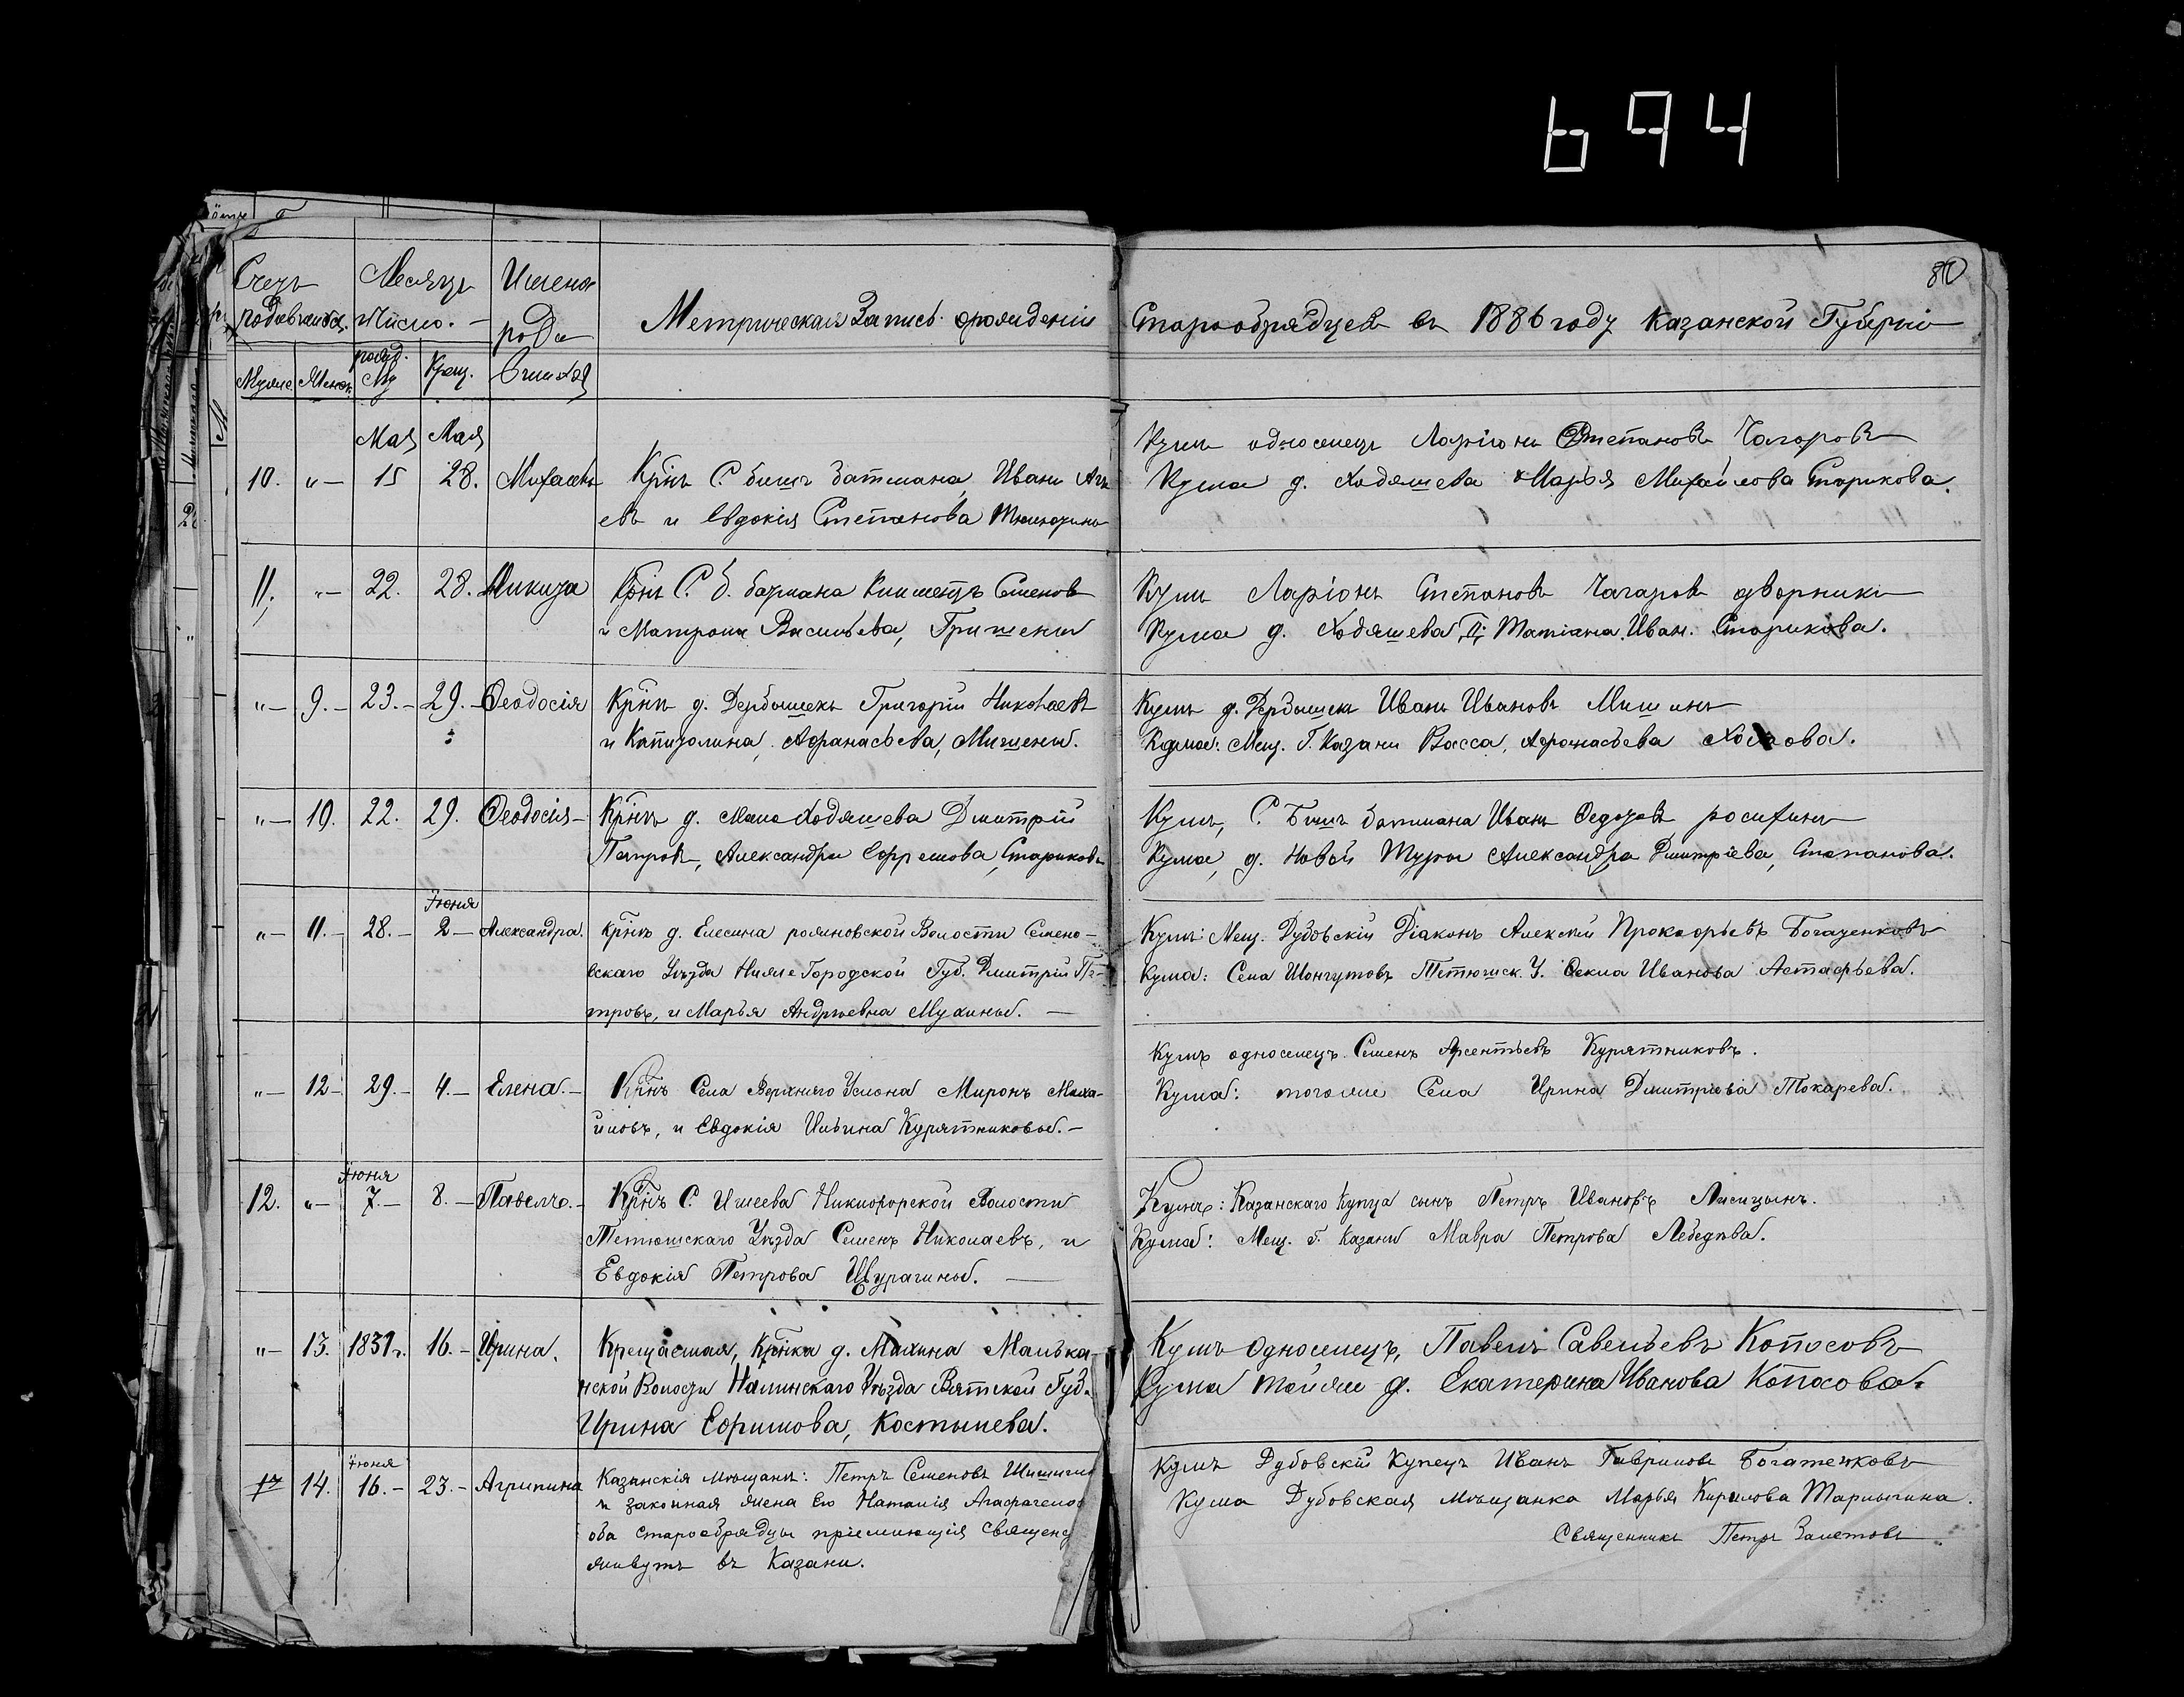 694
80
Счетъ родившихся.
Месяцъ Число.
Имена родившихся
Метрическая Запись о рождении Старообрядцевъ въ 1886 году Казанской Губерніи
Муж. Женск. рожд. Крещ.
Мая Мая
10. „ 15 28. Михаилъ Крнъ С. Бишъ Батмана, Иванъ
евъ и Евдокія Степанова
Кумъ односелецъ Ларіонъ Степановъ Чагаровъ
Кума д. Ходяшева Марья Михайлова Старикова.
11. „ 22. 28. Никита Крнъ С. Б. батмана Климентъ Семеновъ
и Матрона Васильева, Гришены
Кумъ Ларіонъ Степановъ Чагаровъ дворникъ
Кума д. Ходяшева, Татіана Иван. Старикова.
„ 9. 23. 29. Ѳеодосія Крнъ д. Дербышекъ Григорій Николаевъ
и Капитолина, Афанасьева, Мишены.
Кумъ д. Дербышекъ Иванъ Ивановъ Мишинъ
Кума: Мещ. Г. Казани Васса, Афонасьева
„ 10. 22. 29. Ѳеодосія Крнъ д. Мало Ходяшева Дмитрій
Петровъ, Александра Ефремова, Стариковы
Кумъ, С. Бишъ Батмана Иванъ Ѳедоровъ
Кума, д. Новой Туры Александра Дмитріева, Степанова.
Іюня
„ 11. 28. 2 Александра. Крнъ д. Елесина рожновской Волости Семено-
вскаго Уѣзда Ниже Городской Губ. Дмитрій Пе-
тровъ, и Марья Андрѣевна Мухины.
Кумъ: Мещ. Дубовскій Діаконъ Алексѣй Прокофьевъ Богатенковъ
Кума: Села Шонгутовъ Тетюшск. У. Ѳекла Иванова Астафьева.
„ 12 29. 4. Елена. Крнъ Села Верхняго Услона Миронъ Миха-
йловъ, и Евдокія Ильина Курятниковы.
Кумъ односелецъ Семенъ Арсентьевъ Курятниковъ.
Кума: тогоже Села Ирина Дмитріева Токарева.
Іюня
12. „ 7. 8. Павелъ. Крнъ С. Ишеева Никифорской Волости
Тетюшскаго Уѣзда Семенъ Николаевъ, и
Евдокія Петрова
Кумъ: Казанскаго Купца сынъ Петръ Ивановъ Лисицынъ.
Кума: Мещ. г. Казани Мавра Петрова Лебедева.
„ 13. 1831г. 16. Ирина. Крещаемая, Крнка д. Махина Малька-
нской Волости Налинскаго Уѣзда Вятской Губ.
Ирина Ефимова, Костылева.
Кумъ односелецъ, Павелъ Савельевъ Копосовъ
Кума тойже д. Екатерина Иванова Копосова.
Іюня
14. 16. 23. Агрипина Казанскія мѣщане: Петръ Семеновъ
и законная жена его Наталія
оба старообрядцы пріемлющія священс
живутъ въ Казани.
Кумъ Дубовскій Купецъ Иванъ Гавриловъ Богатенковъ
Кума Дубовская мѣщанка Марья Кирилова
Священникъ Петръ Залетовъ